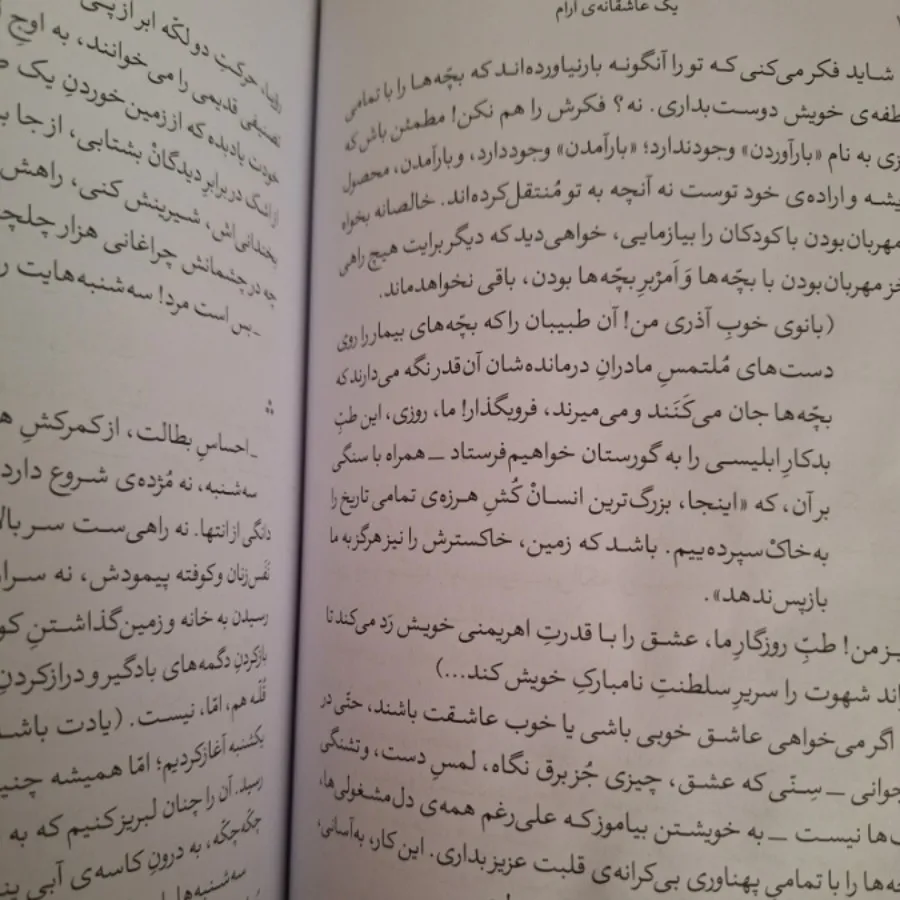 یک عاشقانه‌ی آرام
شاید فکر می‌کنی که تو را آنگونه بارنیاورده‌اند که بچّه‌ها را با تمامی
خویش دوست بداری. نه؟ فکرش را هم نکن! مطمئن باش که
به نام «بارآوردن» وجود ندارد؛ «بارآمدن» وجود دارد، و بارآمدن، محصول
و اراده‌ی خود توست نه آنچه به تو مُنتقل کرده‌اند. خالصانه بخواه
مهربان‌بودن با کودکان را بیازمایی، خواهی‌دید که دیگر برایت هیچ راهی
مهربان‌بودن با بچّه‌ها وَ اَمرْبرِ بچّه‌ها بودن، باقی نخواهدماند.
(بانوی خوبِ آذری من! آن طبیبان را که بچّه‌های بیمار را روی
دست‌های مُلتمسِ مادرانِ درمانده‌شان آن‌قدر نگه می‌دارند که
بچّه‌ها جان می‌کَنَند و می‌میرند، فروبگذار! ما، روزی، این طبّ
بدکارِ ابلیسی را به گورستان خواهیم‌فرستاد ـ همراه با سنگی
بر آن، که «اینجا، بزرگ‌ترین انسانْ کُشِ هرزه‌ی تمامی تاریخ را
به‌خاکْ سپرده‌ییم. باشد که زمین، خاکسترش را نیز هرگز به ما
بازپس‌ندهد».
من! طبِّ روزگارِ ما، عشق را با قدرتِ اهریمنی خویش رَد می‌کند تا
شهوت را سریرِ سلطنتِ نامبارکِ خویش کند...)
اگر می‌خواهی عاشق خوبی باشی یا خوب عاشقت باشند، حتّی در
ـ سِنّی که عشق، چیزی جُز برق نگاه، لمسِ دست، و تشنگی
نیست ـ به خویشتن بیاموز که علی‌رغم همه‌ی دل‌مشغولی‌ها،
را با تمامی پهناوری بی‌کرانه‌ی قلبت عزیز بداری. این کار، به‌آسانی،
حرکتِ دو لکّه ابر از پی
تصنیفی قدیمی را می‌خوانند، به اوجِ
خودت یادبده که از زمین‌خوردنِ یک
از اشک در برابرِ دیدگانْ بشتابی، از جا
بخندانی‌اش، شیرینش کنی، راهش
چه در چشمانش چراغانی هزار
ـ بس است مرد! سه‌شنبه‌هایت
ـ احساسِ بطالت، از کمرکشِ
سه‌شنبه، نه مُژده‌ی شروع دارد
دانگی از انتها. نه راهی‌ست سر
نَفَس‌زنان و کوفته پیمودش، نه
رسیدن به خانه و زمین‌گذاشتنِ
بازکردنِ دگمه‌های بادگیر و درازکردنِ
قُلّه هم، امّا، نیست. (یادت
یکشنبه آغاز کردیم؛ امّا همیشه
رسید. آن را چنان لبریز کنیم که به
چکّه‌چکّه، به درونِ کاسه‌ی آبی